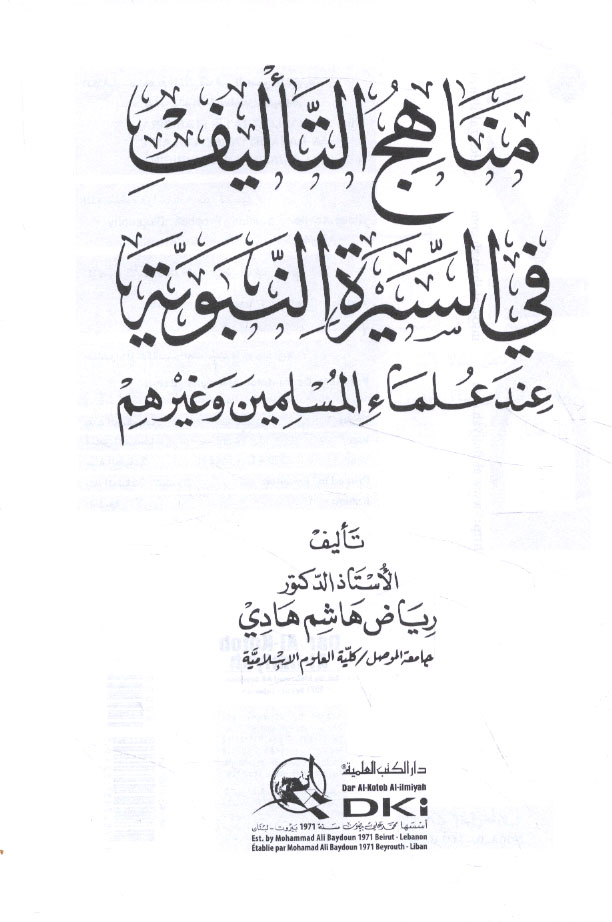 مَنَاهِجُ التَّأليف
في السِّيرَةِ النَّبَوِيَّة
عِندَ عُلَمَاءِ المُسْلِمين وَغَيْرِهِمْ
تَأليف
الأُسْتَاذ الدّكتور
رِيَاض هَاشِم هَادِيْ
جامعة الموصل / كليّة العلوم الإسلاميّة
دار الكتب العلمية®
Dar Al-Kotob Al-ilmiyah
DKi
أسسها محمد علي بيضون سنة 1971 بيروت - لبنان
Est. by Mohammad Ali Baydoun 1971 Beirut - Lebanon
Établie par Mohamad Ali Baydoun 1971 Beyrouth - Liban